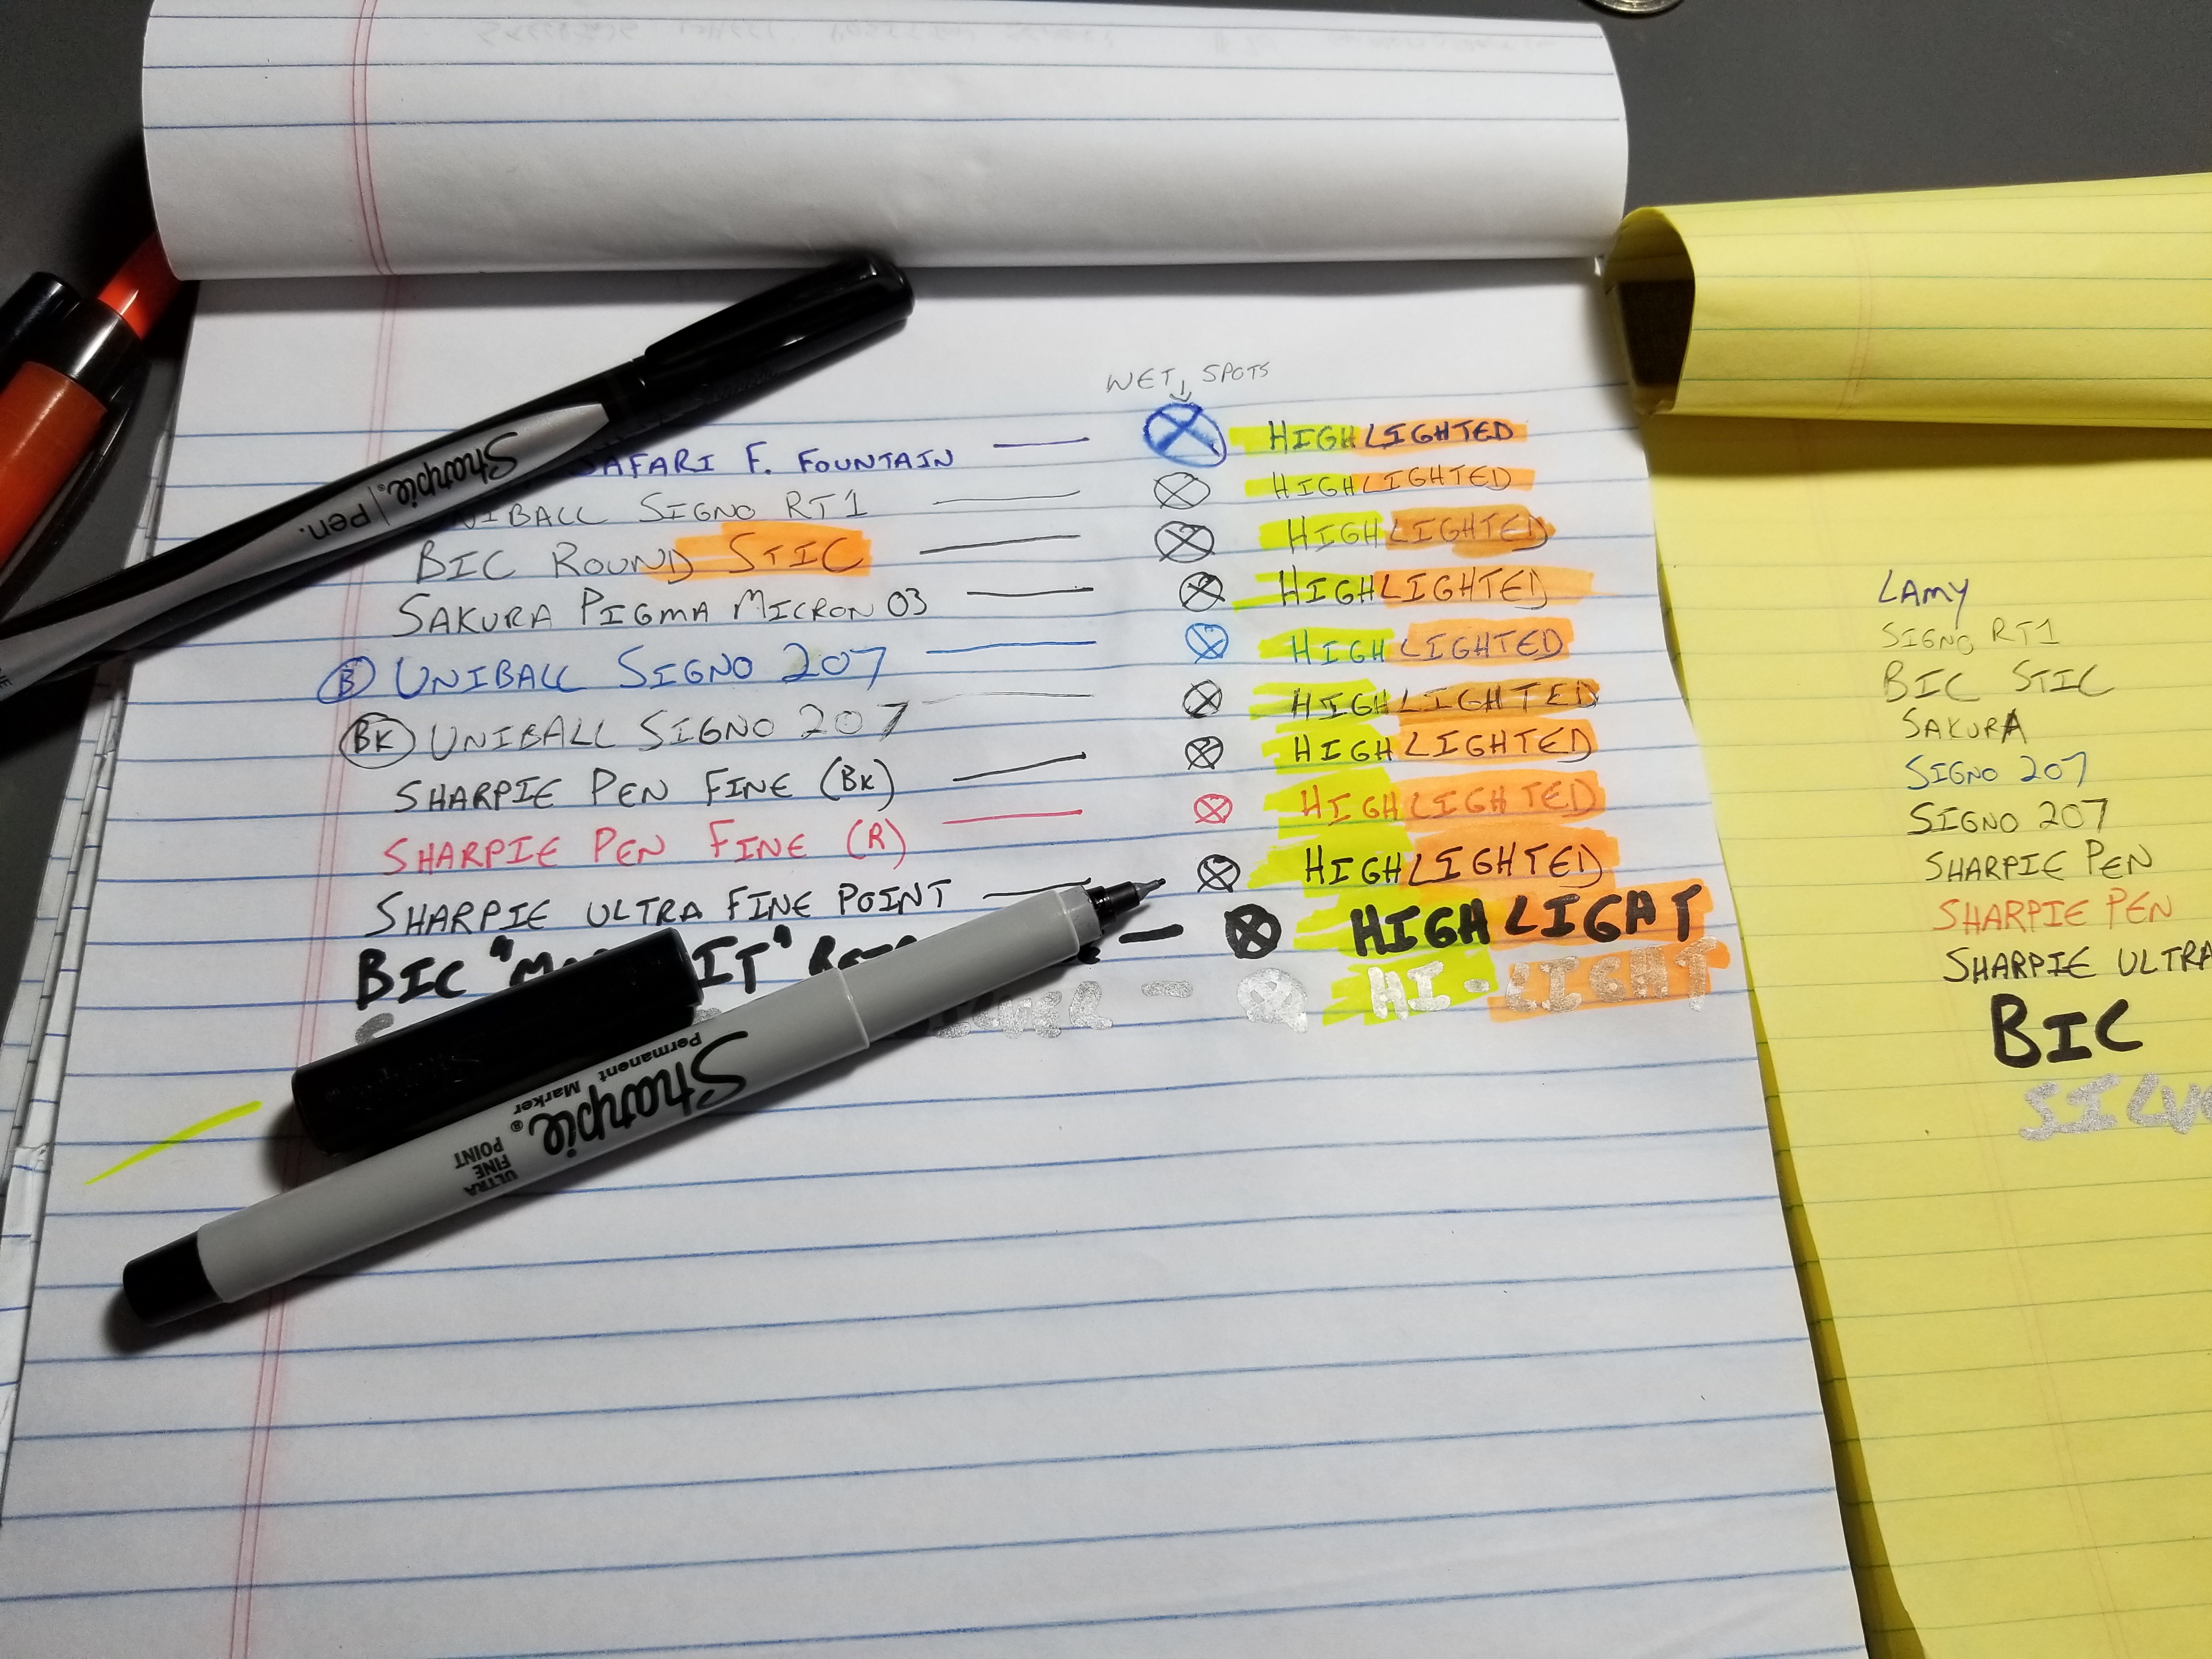 WET SPOTS
SAFARI F. FOUNTAIN HIGHLIGHTED
UNIBALL SIGNO RT1 HIGHLIGHTED
BIC ROUND STIC HIGHLIGHTED
SAKURA PIGMA MICRON 03 HIGHLIGHTED
B UNIBALL SIGNO 207 HIGHLIGHTED
BK UNIBALL SIGNO 207 HIGHLIGHTED
SHARPIE PEN FINE (BK) HIGHLIGHTED
SHARPIE PEN FINE (R) HIGHLIGHTED
SHARPIE ULTRA FINE POINT HIGHLIGHTED
BIC IT" HIGHLIGHT
HI-LIGHT
Sharpie® Pen.
Sharpie®
Permanent Marker
ULTRA FINE POINT
LAMY
SIGNO RT1
BIC STIC
SAKURA
SIGNO 207
SIGNO 207
SHARPIE PEN
SHARPIE PEN
SHARPIE ULTRA
BIC